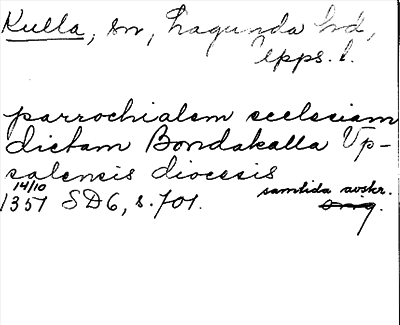 Kulla, sn, Lagunda hd,
Upps. l.
parrochialem ecclesiam
dictam Bondakalla Vp-
salensis diocesis
14/10
1351 SD6, s. 701. samtida avskr.
orig.